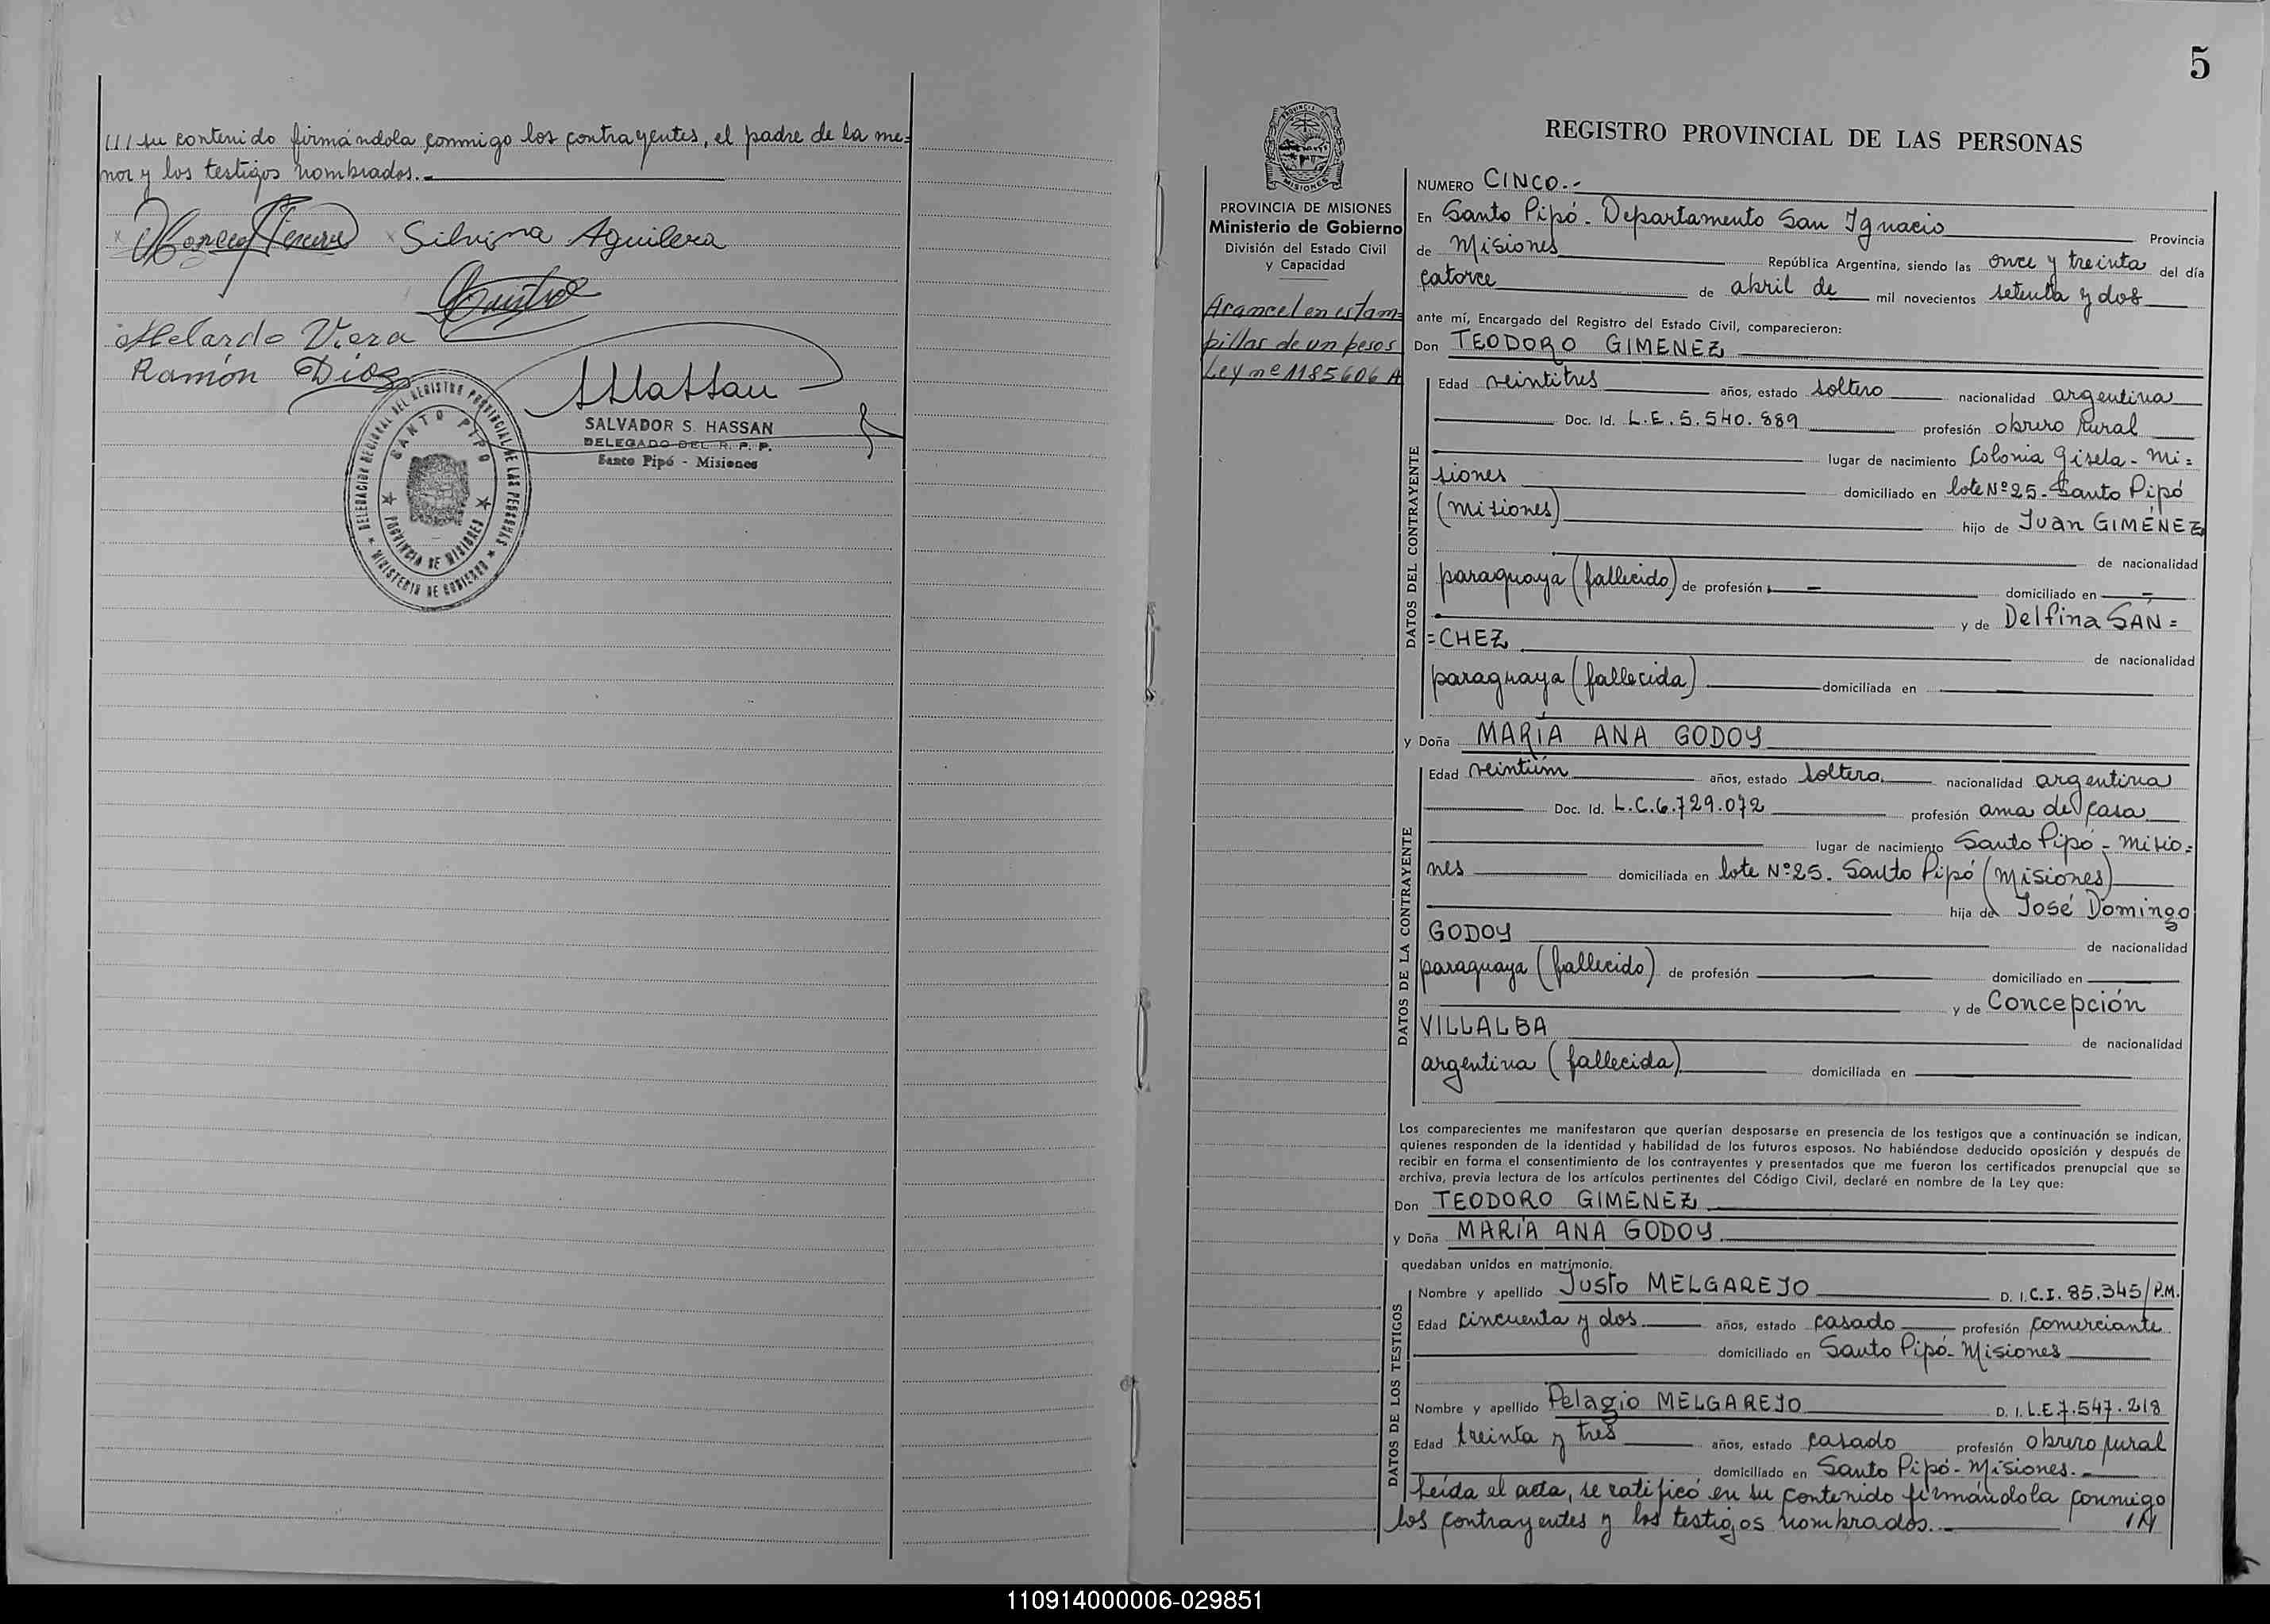 /// su contenido firmándola conmigo los contrayentes, el padre de la me=
nor y los testigos nombrados.-
Silvina Aguilera
Abelardo Viera
Ramón Dios
SALVADOR S. HASSAN
DELEGADO DEL R. P. P.
Santo Pipó - Misiones
DELEGACION REGIONAL DEL REGISTRO PROVINCIAL DE LAS PERSONAS
★ MINISTERIO DE GOBIERNO ★
SANTO PIPO
★ PROVINCIA DE MISIONES ★
5
PROVINCIA DE MISIONES
Ministerio de Gobierno
División del Estado Civil
y Capacidad
Arancel en estam=
pillas de un pesos
Ley nº 1185606 A
REGISTRO PROVINCIAL DE LAS PERSONAS
NUMERO CINCO.-
En Santo Pipó - Departamento San Ignacio Provincia
de Misiones República Argentina, siendo las once y treinta del día
catorce de abril de mil novecientos setenta y dos
ante mí, Encargado del Registro del Estado Civil, comparecieron:
Don TEODORO GIMENEZ
DATOS DEL CONTRAYENTE
Edad veintitres años, estado soltero nacionalidad argentina
Doc. Id. L.E. 5.540.889 profesión obrero rural
lugar de nacimiento Colonia Gisela - Mi=
siones domiciliado en lote Nº 25 - Santo Pipó
(Misiones) hijo de Juan GIMÉNEZ
de nacionalidad
paraguaya (fallecido) de profesión - domiciliado en -
y de Delfina SÁN=
=CHEZ de nacionalidad
paraguaya (fallecida) domiciliada en
y Doña MARÍA ANA GODOY
DATOS DE LA CONTRAYENTE
Edad veintiún años, estado soltera nacionalidad argentina
Doc. Id. L.C. 6.729.072 profesión ama de casa
lugar de nacimiento Santo Pipó - Misio=
nes domiciliada en lote Nº 25 - Santo Pipó (Misiones)
hija de José Domingo
GODOY de nacionalidad
paraguaya (fallecido) de profesión domiciliado en
y de Concepción
VILLALBA de nacionalidad
argentina (fallecida) domiciliada en
Los comparecientes me manifestaron que querían desposarse en presencia de los testigos que a continuación se indican,
quienes responden de la identidad y habilidad de los futuros esposos. No habiéndose deducido oposición y después de
recibir en forma el consentimiento de los contrayentes y presentados que me fueron los certificados prenupcial que se
archiva, previa lectura de los artículos pertinentes del Código Civil, declaré en nombre de la Ley que:
Don TEODORO GIMENEZ
y Doña MARÍA ANA GODOY.
quedaban unidos en matrimonio.
DATOS DE LOS TESTIGOS
Nombre y apellido Justo MELGAREJO D. I. C.I. 85.345/P.M.
Edad cincuenta y dos años, estado casado profesión comerciante
domiciliado en Santo Pipó - Misiones
Nombre y apellido Pelagio MELGAREJO D. I. L.E. 7.547.218
Edad treinta y tres años, estado casado profesión obrero rural
domiciliado en Santo Pipó - Misiones.-
Leída el acta, se ratificó en su contenido firmándola conmigo
los contrayentes y los testigos nombrados.- ///
110914000006-029851